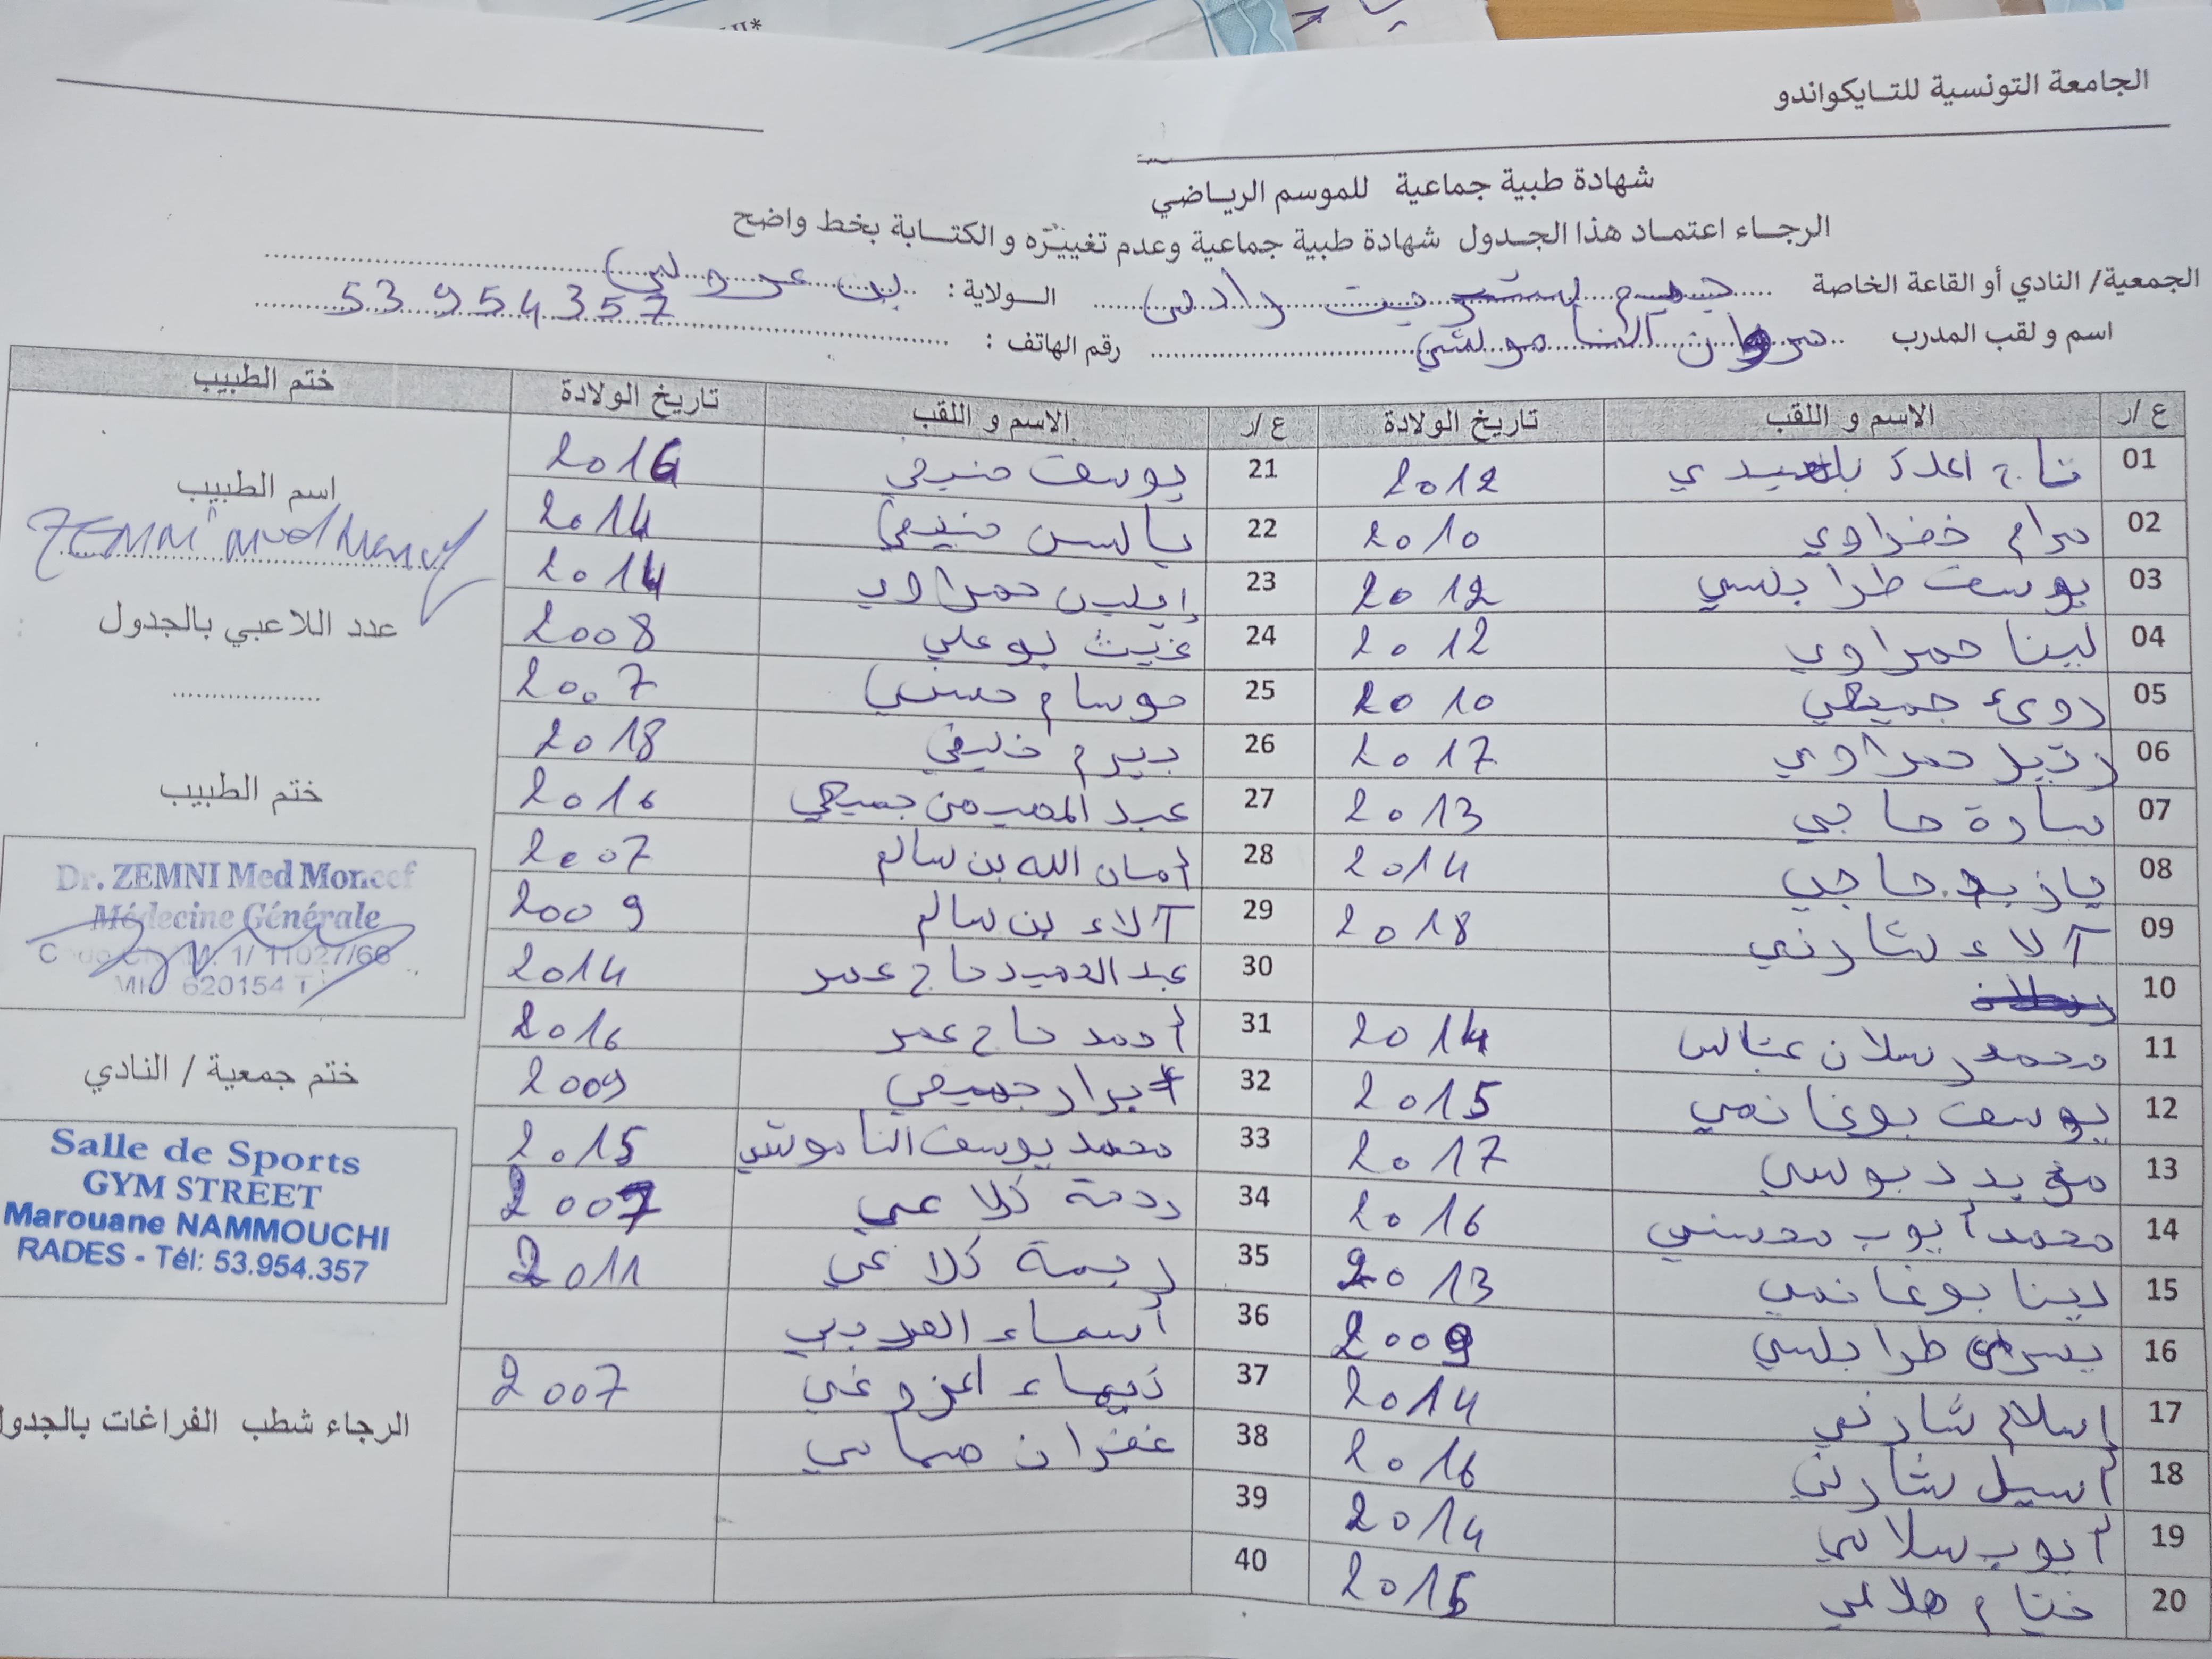 الجامعة التونسية للتايكواندو
شهادة طبية جماعية للموسم الرياضي
الرجاء اعتماد هذا الجدول شهادة طبية جماعية وعدم تغييره و الكتابة بخط واضح
الجمعية/ النادي أو القاعة الخاصة جيم ستريت رادس الولاية : بن عروس
اسم و لقب المدرب مروان الناموشي رقم الهاتف : 53 954 357
ع /ر الاسم و اللقب تاريخ الولادة ع /ر الاسم و اللقب تاريخ الولادة ختم الطبيب
01 2012
02 مرام خضراوي 2010
03 يوسف طرابلسي 2012
04 لينا حمراوي 2012
05 رؤى جميعي 2010
06 حمراوي 2017
07 سارة حاجي 2013
08 يازيد حاجي 2014
09 آلاء شارني 2018
10
11 محمد رسلان عباس 2014
12 يوسف بوغانمي 2015
13 مؤيد دبوسي 2017
14 محمد أيوب محسني 2016
15 دينا بوغانمي 2013
16 يسرى طرابلسي 2009
17 إسلام شارني 2014
18 أسيل شارني 2016
19 أيوب سلامي 2014
20 ختام هلالي 2015
21 يوسف منيعي 2016
22 ياسين منيعي 2014
23 إيلين حمراوي 2014
24 غيث بوعلي 2008
25 حوسام حسني 2007
26 بيرم خليفي 2018
27 عبد المهيمن جميعي 2016
28 أمان الله بن سالم 2007
29 آلاء بن سالم 2009
30 عبد الحميد حاج عمر 2014
31 أحمد حاج عمر 2016
32 أبرار جميعي 2009
33 محمد يوسف الناموشي 2015
34 رحمة كلاعي 2007
35 كلاعي 2011
36 أسماء
37 2007
38 غفران
39
40
اسم الطبيب
ZEMNI Med Moncef
عدد اللاعبي بالجدول
ختم الطبيب
Dr. ZEMNI Med Moncef
Médecine Générale
1/ 11027/66
620154
ختم جمعية / النادي
Salle de Sports
GYM STREET
Marouane NAMMOUCHI
RADES - Tél: 53.954.357
الرجاء شطب الفراغات بالجدول